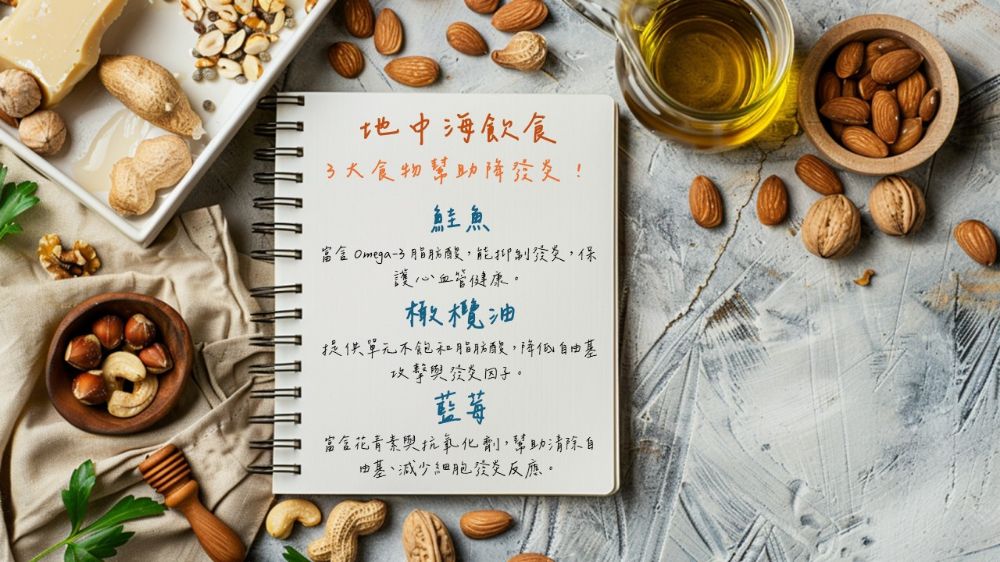 地中海飲食
3大食物幫助降發炎！
鮭魚
富含Omega-3脂肪酸，能抑制發炎，保
護心血管健康。
橄欖油
提供單元不飽和脂肪酸，降低自由基
攻擊與發炎因子。
藍莓
富含花青素與抗氧化劑，幫助清除自
由基、減少細胞發炎反應。